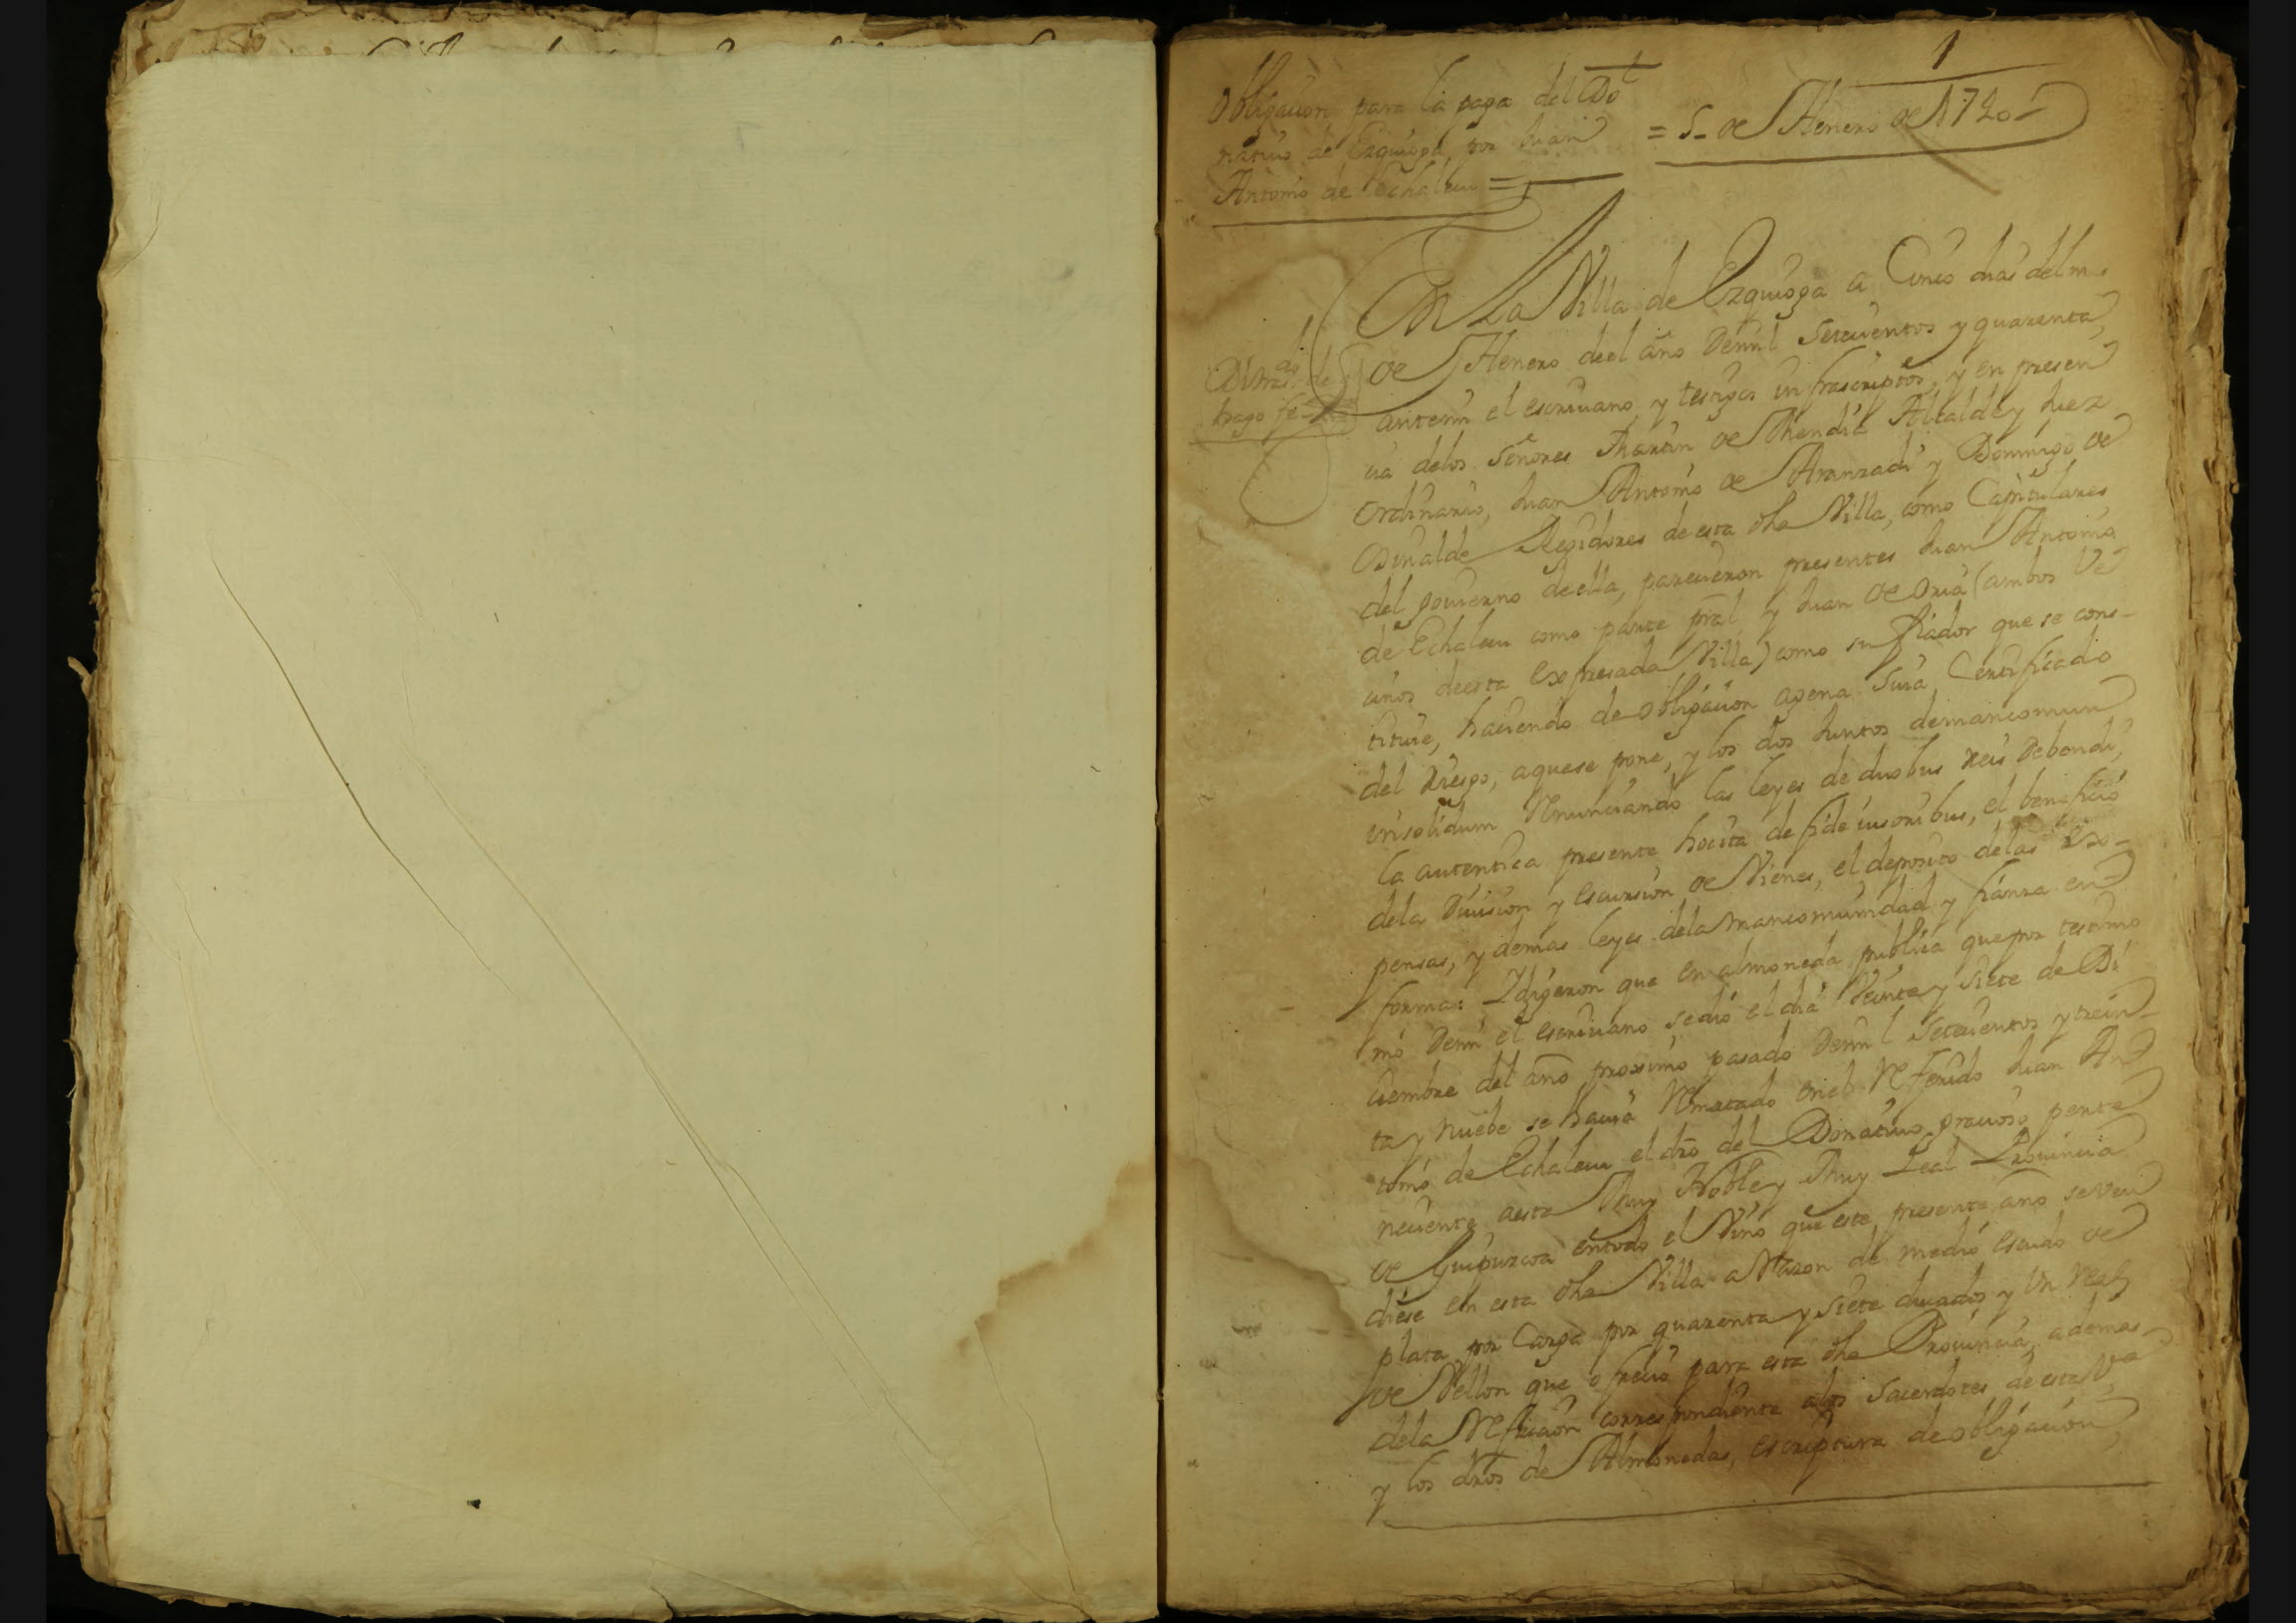 1
Obligacion para la paga del Do
natiuo de Ezquioga, por Juan
Antonio de Echalecu =
= 5 - de Henero de 1740 -
En La Villa de Ezquioga a Cinco dias del m.
de Henero deel año Demil Setecientos y quarenta,
antemi el escriuano, y testigos infrascriptos, y en presen
cia delos Señores Martin de Mendia Alcalde y Juez
ordinario, Juan Antonio de Aranzadi y Domingo de
Regidores de esta dha Villa, como Capitulares
del gouierno de ella, parecieron presentes Juan Antonio
de Echalecu como parte pral, y Juan de Oria (ambos Ve
cinos deesta Expresada Villa) como su fiador que se cons-
tituie, haciendo de obligacion agena Suia, Certificado
del Riesgo, aquese pone, y los dos Juntos demancomun
insolidum Renunciando las leyes de duobus reis Debendi,
la autentica presente hocita de fide iusoribus, el beneficio
dela Diuision y escursion de Vienes, el deposito delas Ex-
pensas, y demas leyes dela mancomunidad y fianza en
forma: Y digeron que en almoneda publica que por testimo
nio Demi el escriuano se dio el dia Veinte y Siete de Di
ciembre del año proximo pasado Demil Setecientos y trein-
ta y nuebe se hauia Rematado enel Referido Juan An
tonio de Echalecu el dro del Donatiuo gracioso perte
neciente aesta Muy Noble y Muy Leal Prouincia
de Guipuzcoa entodo el Vino que este presente año se Ven
diese en esta dha Villa a Razon de medio escudo de
plata por Carga por quarenta y Siete ducados y Un Real
de Vellon que ofrecio para esta dha Prouincia, ademas
dela Refaccion correspondiente alos Sacerdotes de esta Va
y los dros de Almonedas, escriptura de obligacion,
hago fe